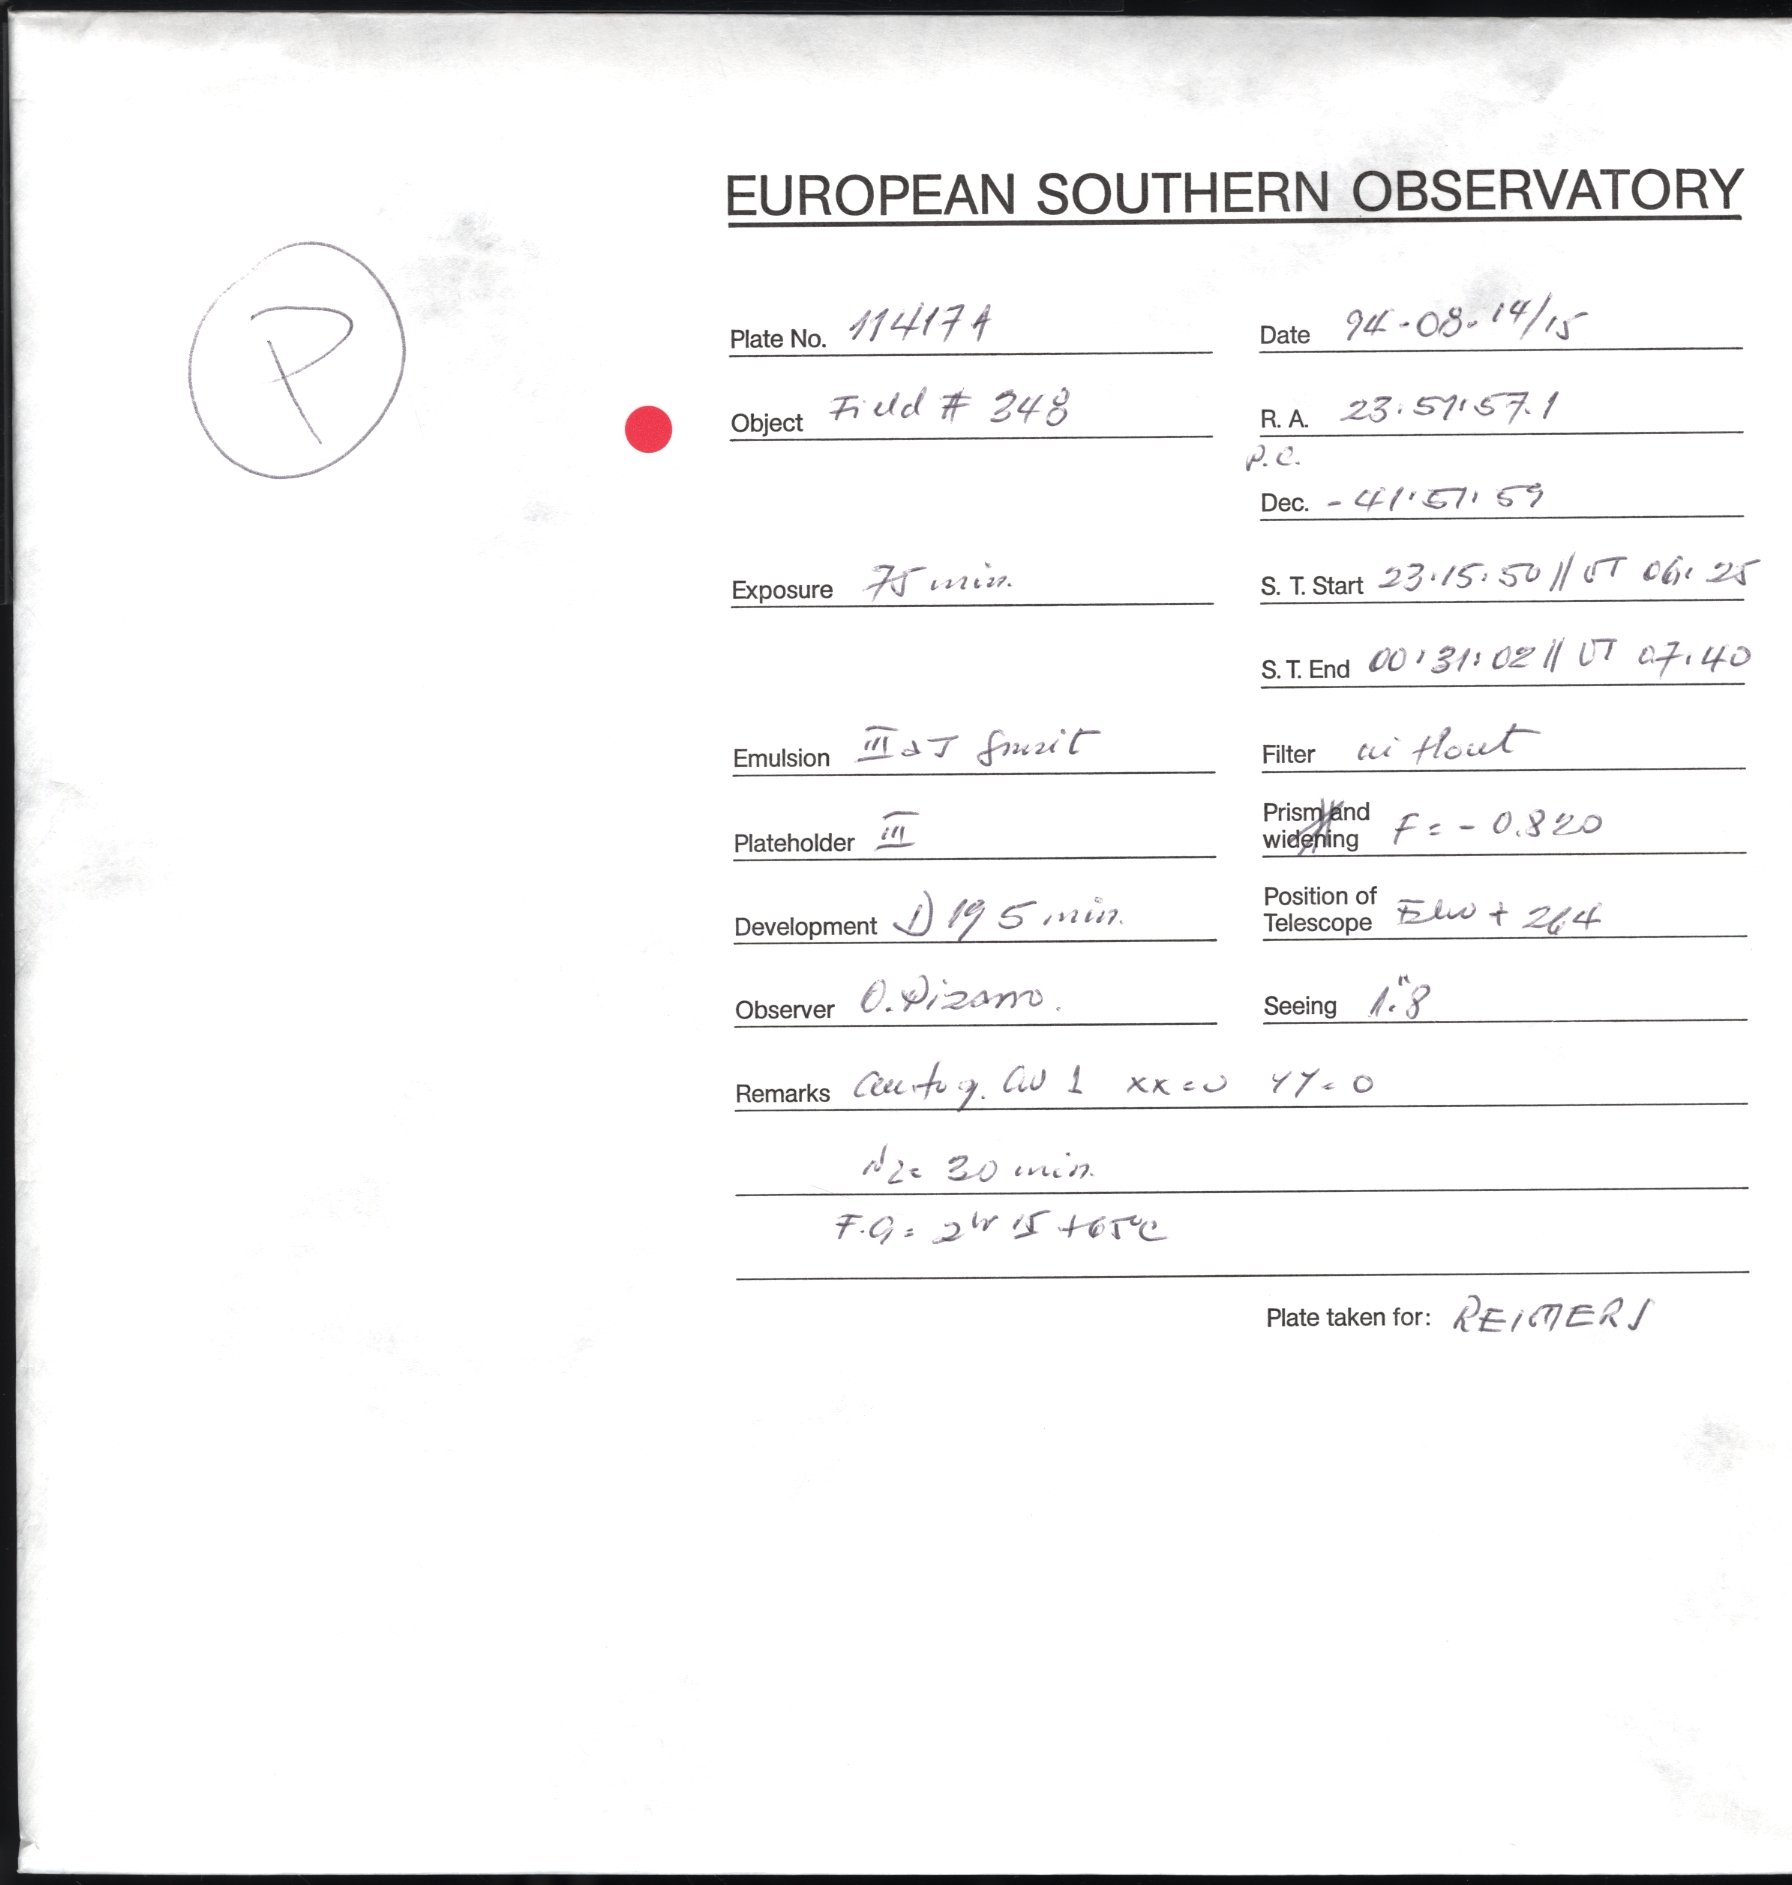 EUROPEAN SOUTHERN OBSERVATORY
P
Plate No. 11417A
Date 94-08-14/15
Object Field # 348
R. A. 23:51:57.1
P.C.
Dec. -41:51:59
Exposure 75 min.
S. T. Start 23:15:50 // UT 06:25
S. T. End 00:31:02 // UT 07:40
Emulsion III a J
Filter without
Plateholder III
Prism and widening F = - 0.820
Development D 19 5 min.
Position of Telescope + 264
Observer O. Pizarro.
Seeing 1."8
Remarks 1 xx = 0 YY = 0
N2 = 30 min.
F.G = 2hr 15 +65°C
Plate taken for: REIMERS